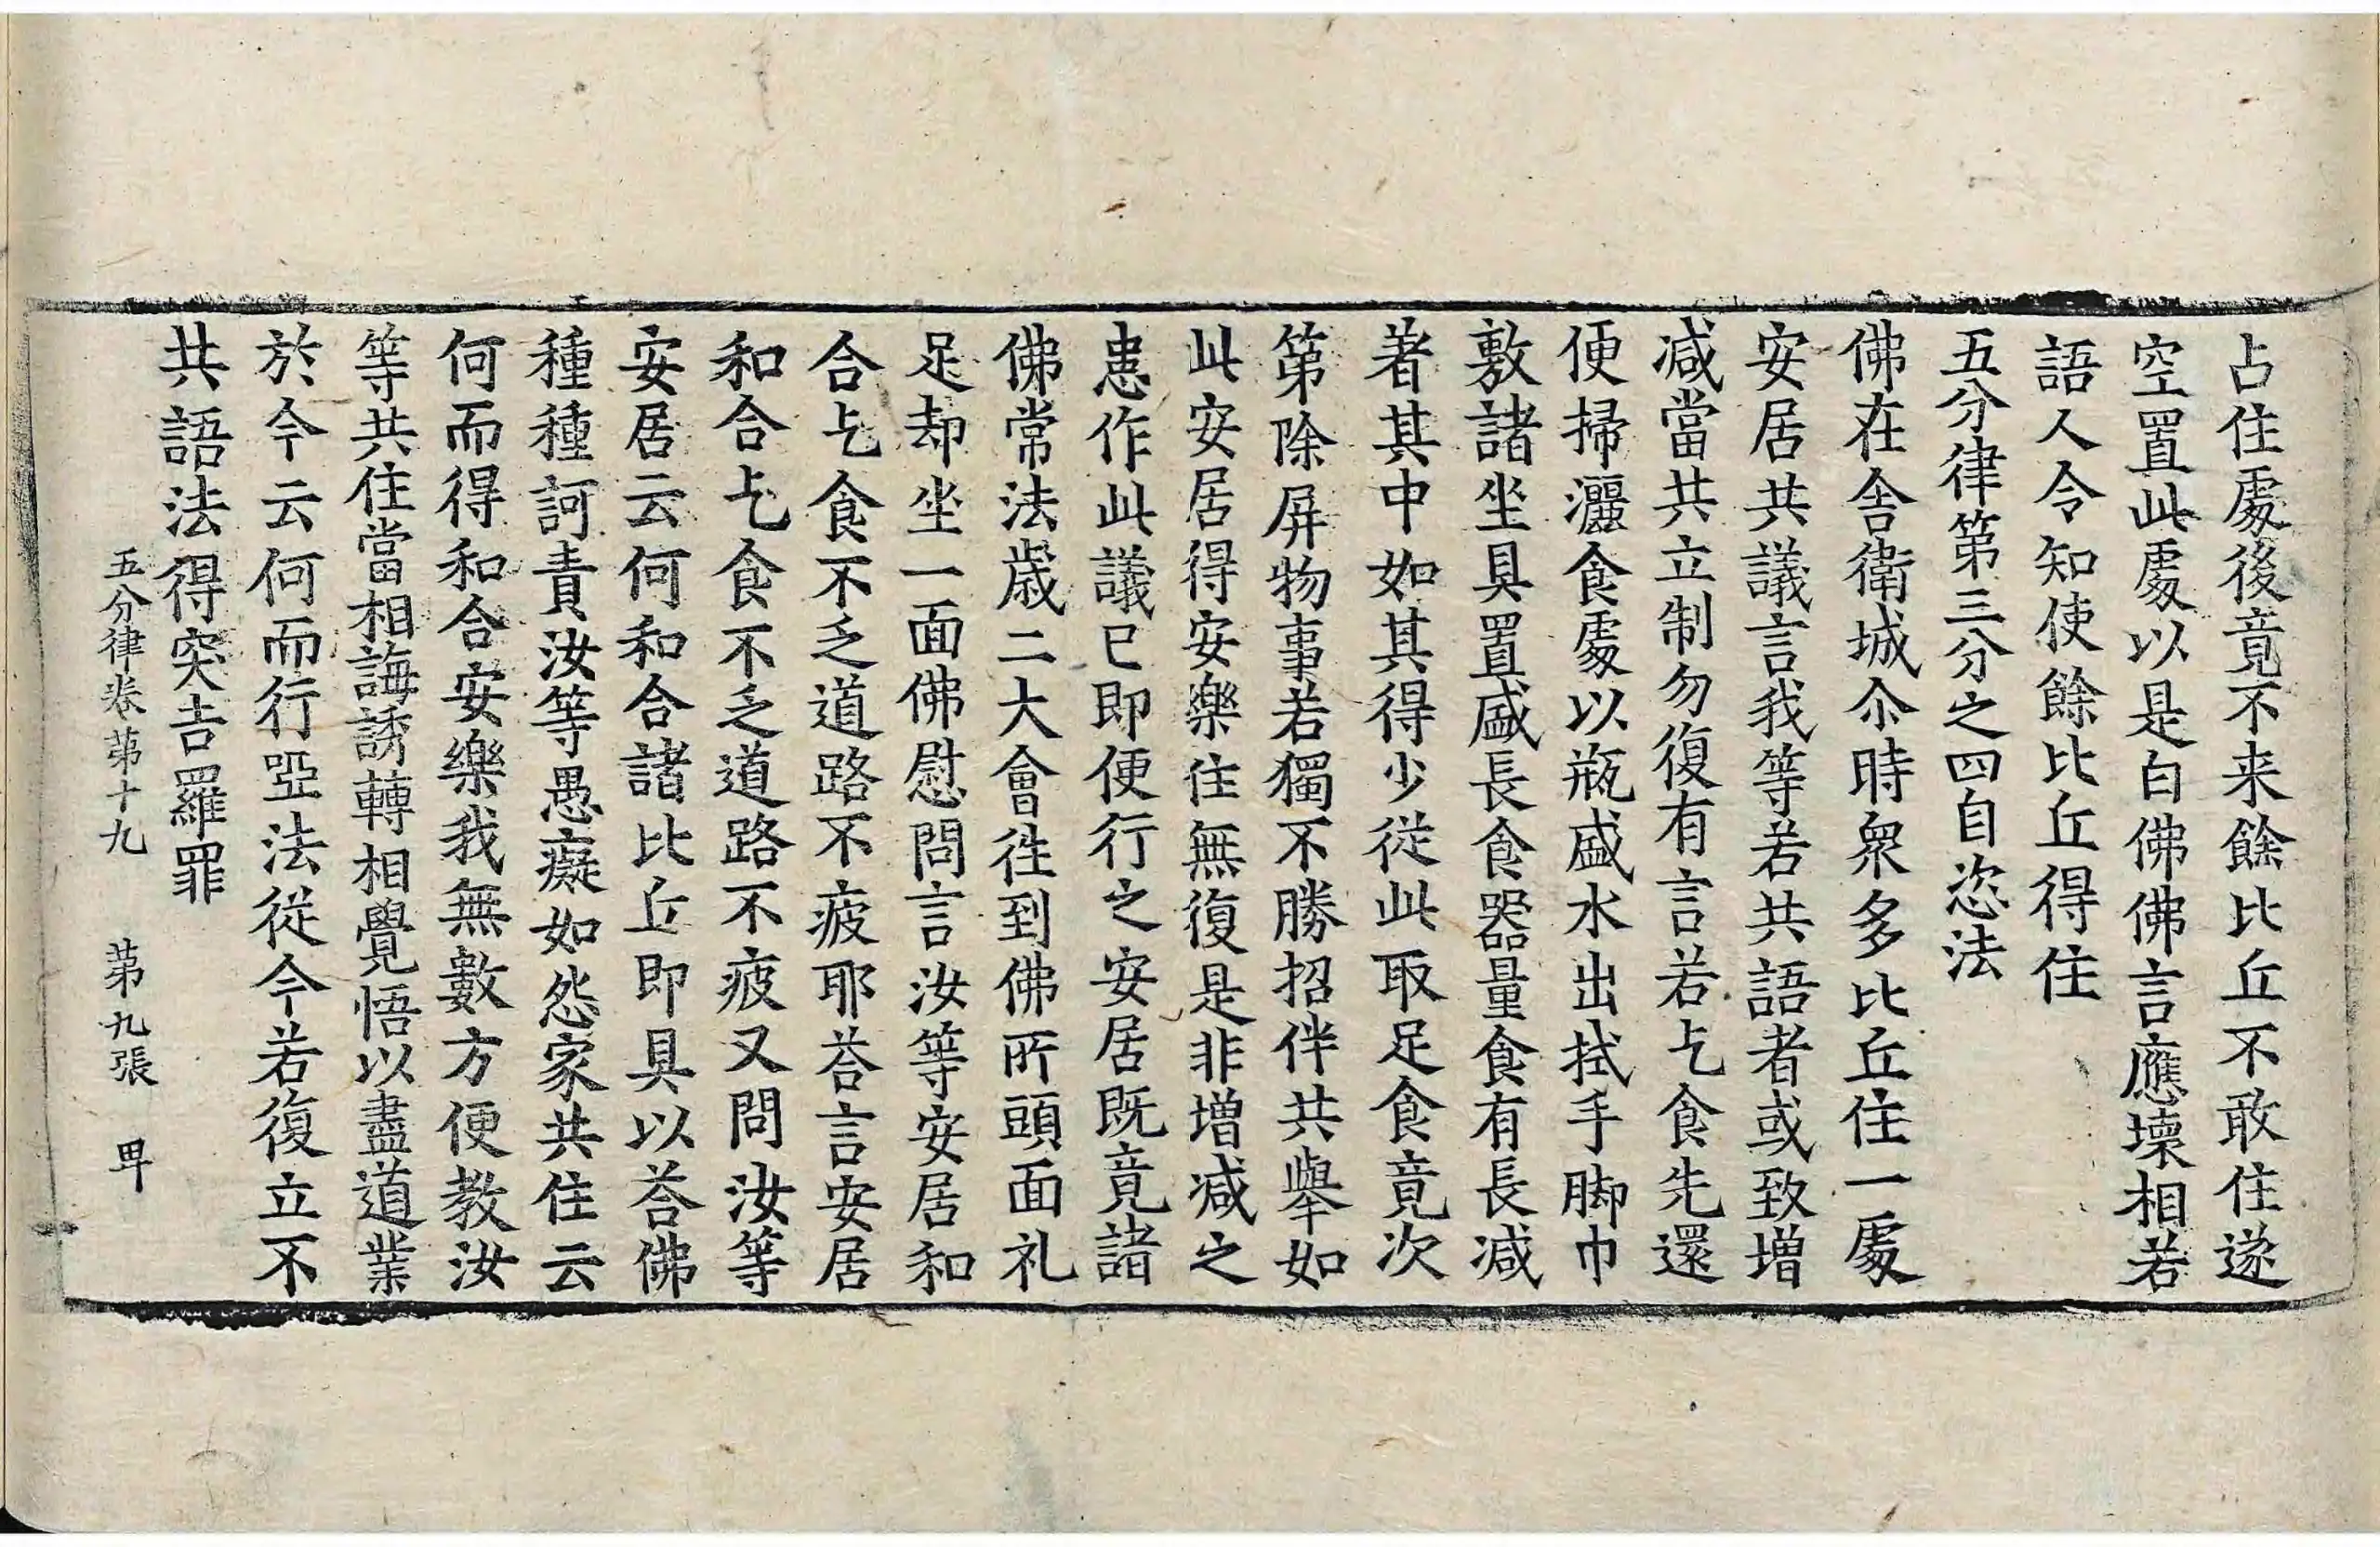 占住處後竟不来餘比丘不敢住遂
空置此處以是白佛佛言應壞相若
語人令知使餘比丘得住
五分律第三分之四自恣法
佛在舍衛城尒時衆多比丘住一處
安居共議言我等若共語者或致增
减當共立制勿復有言若乞食先還
便掃灑食處以瓶盛水出拭手脚巾
敷諸坐具置盛長食器量食有長减
著其中如其得少從此取足食竟次
第除屏物事若獨不勝招伴共舉如
此安居得安樂住無復是非增减之
患作此議已即便行之安居既竟諸
佛常法歲二大會徃到佛所頭面礼
足却坐一面佛慰問言汝等安居和
合乞食不乏道路不疲耶荅言安居
和合乞食不乏道路不疲又問汝等
安居云何和合諸比丘即具以荅佛
種種訶責汝等愚癡如怨家共住云
何而得和合安樂我無數方便教汝
等共住當相誨誘轉相覺悟以盡道業
於今云何而行啞法從今若復立不
共語法得突吉羅罪
五分律卷第十九 第九張 甲